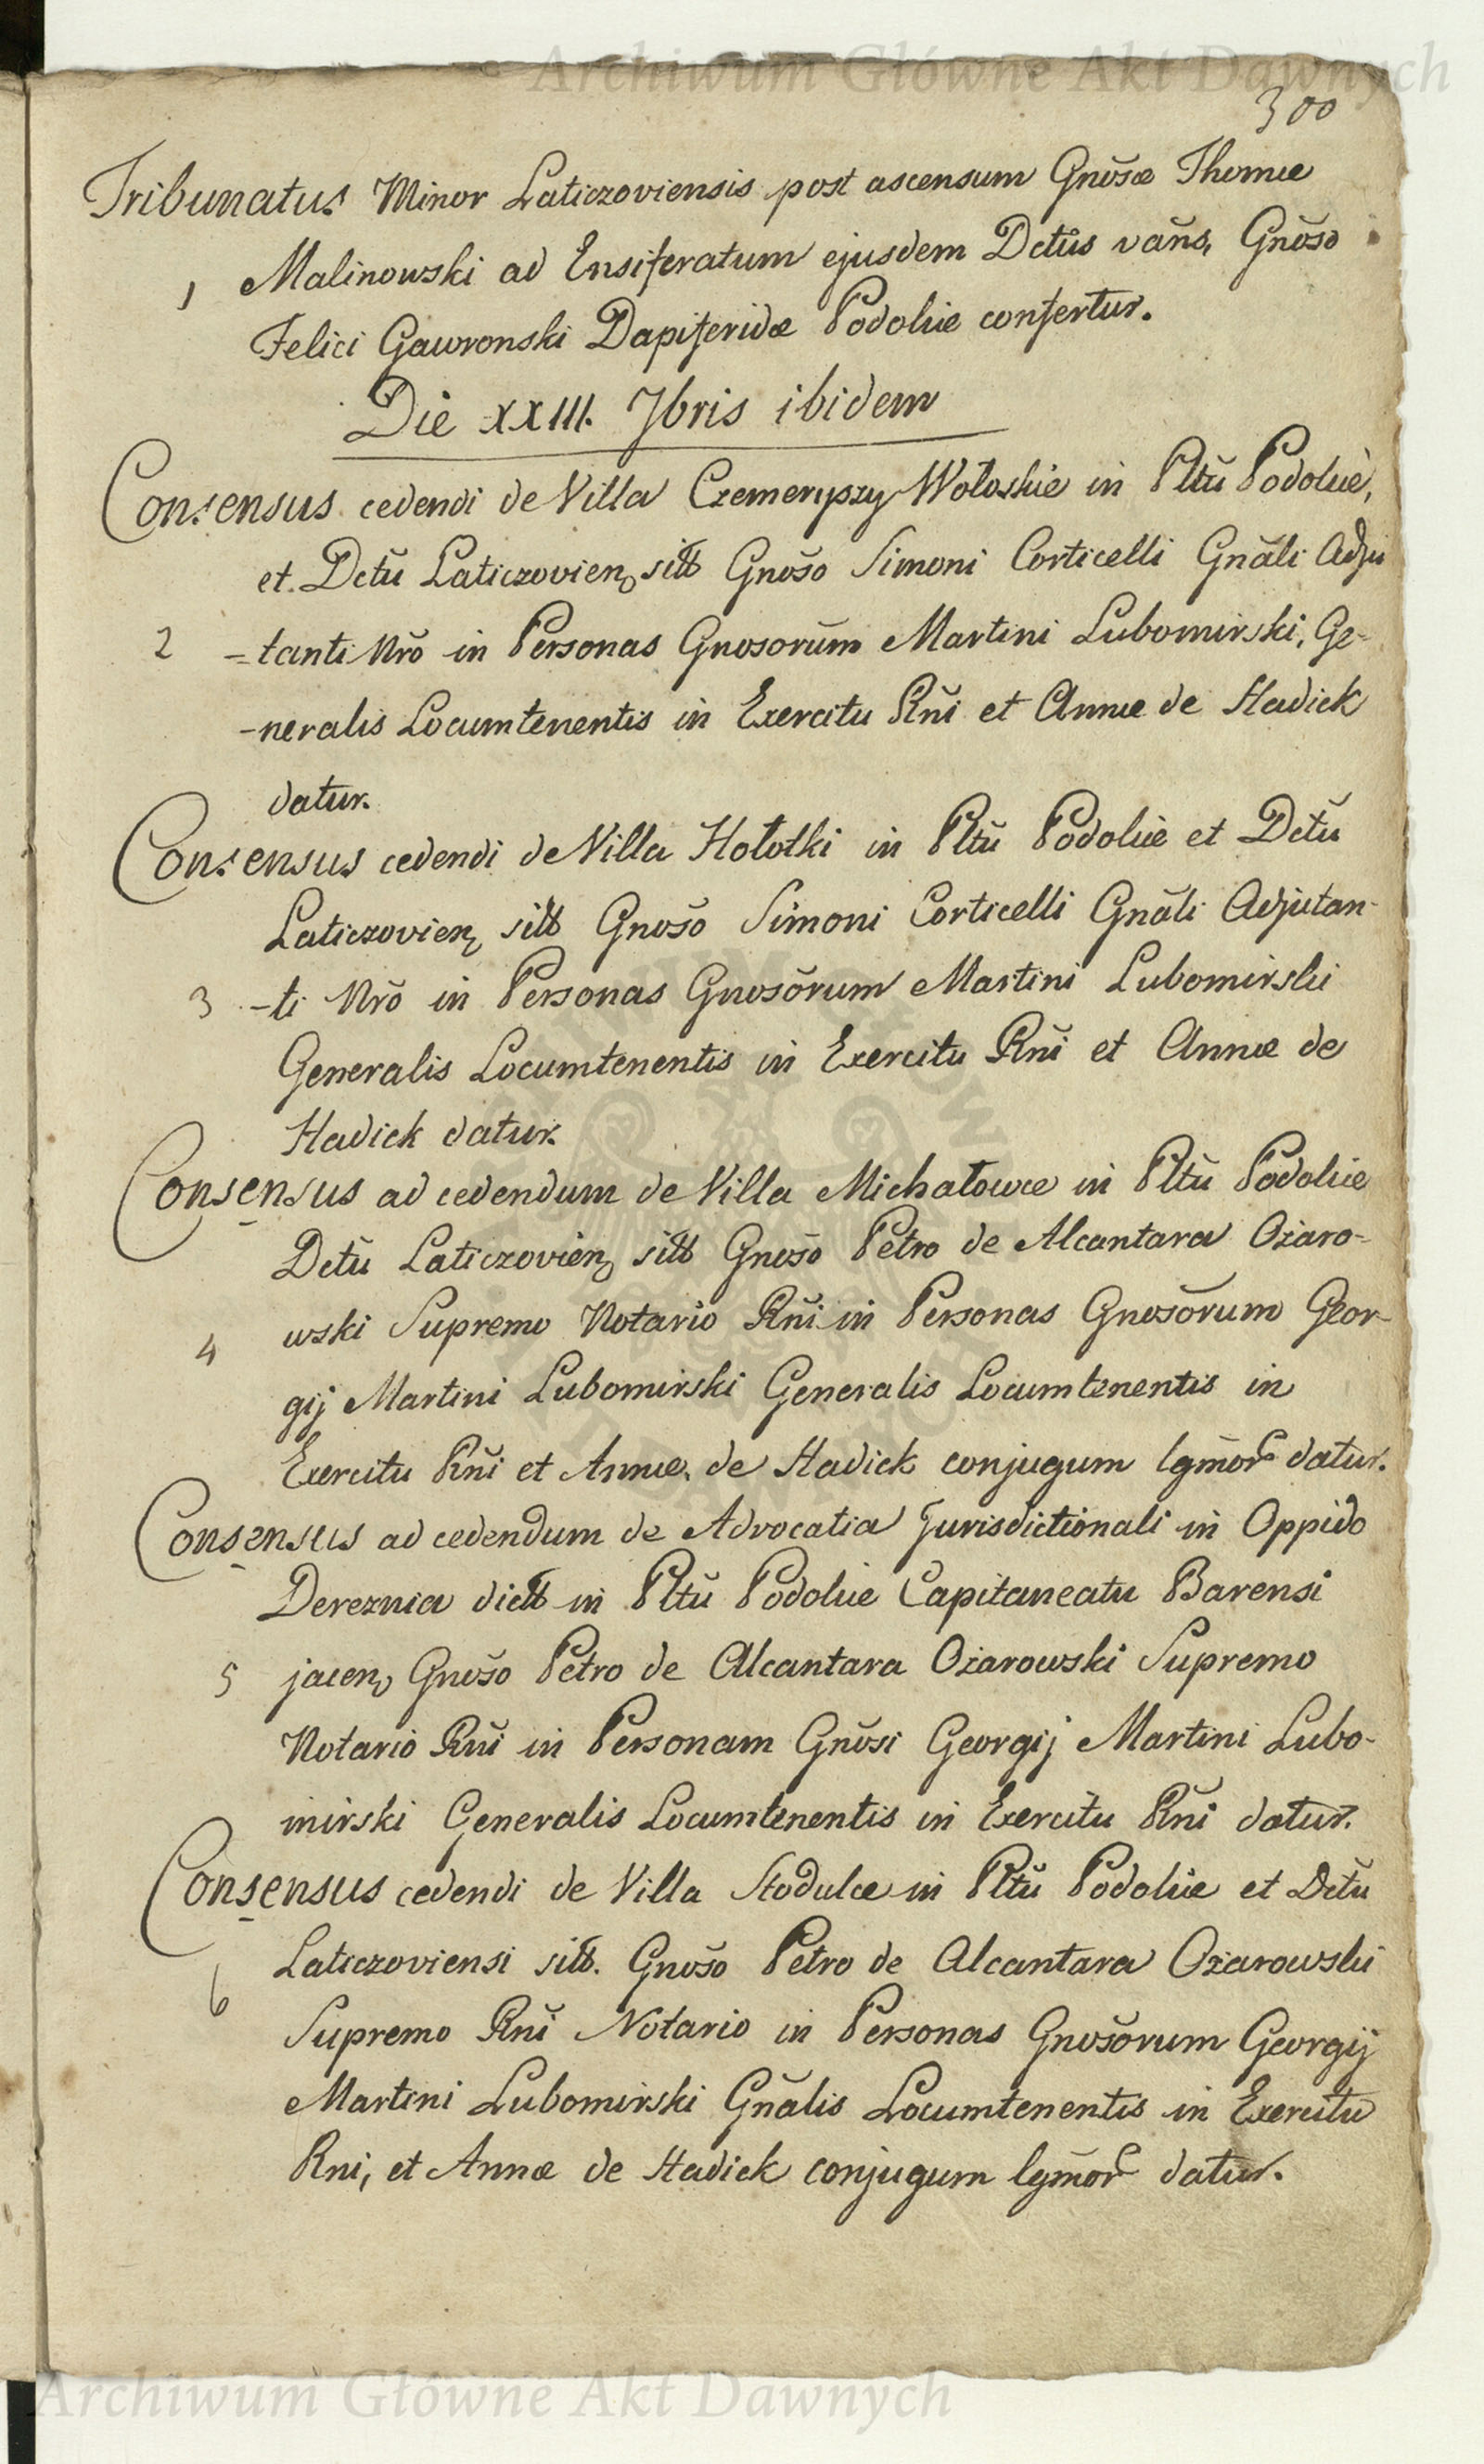 Archiwum Główne Akt Dawnych
300
Tribunatus Minor Laticzoviensis post ascensum Gnosæ Thomæ
1 Malinowski ad Ensiferatum ejusdem Dctûs vañs, Gnõso
Felici Gawronski Dapiferidæ Podoliæ confertur.
Die XXIII. 7bris ibidem
Consensus cedendi de Villa Czemerypzy Wołoskie in Pltũ Podoliæ,
et Dctũ Laticzovien, sitt Gnošo Simoni Corticelli Gnãli Adju
2 =tanti Nrõ in Personas Gnosorũm Martini Lubomirski, Ge-
-neralis Locumtenentis in Exercitu Rñi et Annæ de Hadick
datur.
Consensus cedendi de Villa Hołotki in Pltũ Podoliæ et Dctũ
Laticzovien, sitt Gnošo Simoni Corticelli Gnãli Adjutan-
3 -ti Nrõ in Personas Gnosõrum Martini Lubomirski
Generalis Locumtenentis in Exercitu Rñi et Annæ de
Hadick datur.
Consensus ad cedendum de Villa Michałowce in Pltũ Podoliæ
Dctũ Laticzovien, sitt Gnošo Petro de Alcantara Ożaro-
4 wski Supremo Notario Rñi in Personas Gnosõrum Geor-
gij Martini Lubomirski Generalis Locumtenentis in
Exercitu Rñi et Annæ de Hadick conjugum lgmõr datur.
Consensus ad cedendum de Advocatia Jurisdictionali in Oppido
Dereznia dictt in Pltũ Podoliæ Capitaneatu Barensi
5 jacen, Gnošo Petro de Alcantara Ożarowski Supremo
Notario Rñi in Personam Gnõsi Georgij Martini Lubo-
mirski Generalis Locumtenentis in Exercitu Rñi datur.
Consensus cedendi de Villa Stodulce in Pltũ Podoliæ et Dctũ
Laticzoviensi sitt. Gnošo Petro de Alcantara Ożarowski
6 Supremo Rñi Notario in Personas Gnosõrum Georgij
Martini Lubomirski Gñalis Locumtenentis in Exercitu
Rni, et Annæ de Hadick conjugum lgmõr datur.
Archiwum Główne Akt Dawnych